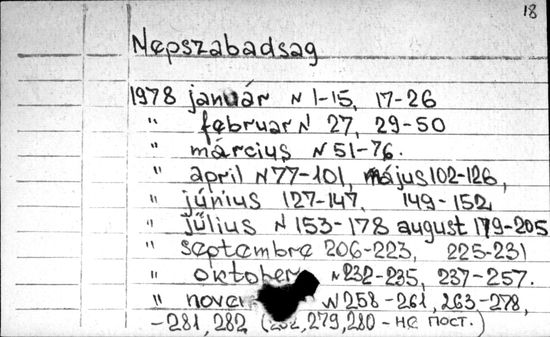 18
Nepszabadsag
1978 január N 1-15, 17-26
" februar N 27, 29-50
" március N 51-76.
" april N 77-101, május 102-126,
" június 127-147, 149-152
" július N 153-178 august 179-205
" septembre 206-223, 225-231
" oktober N 232-235, 237-257.
" N 258-261, 263-278,
-281, 282 (262, 279, 280 - не пост.)